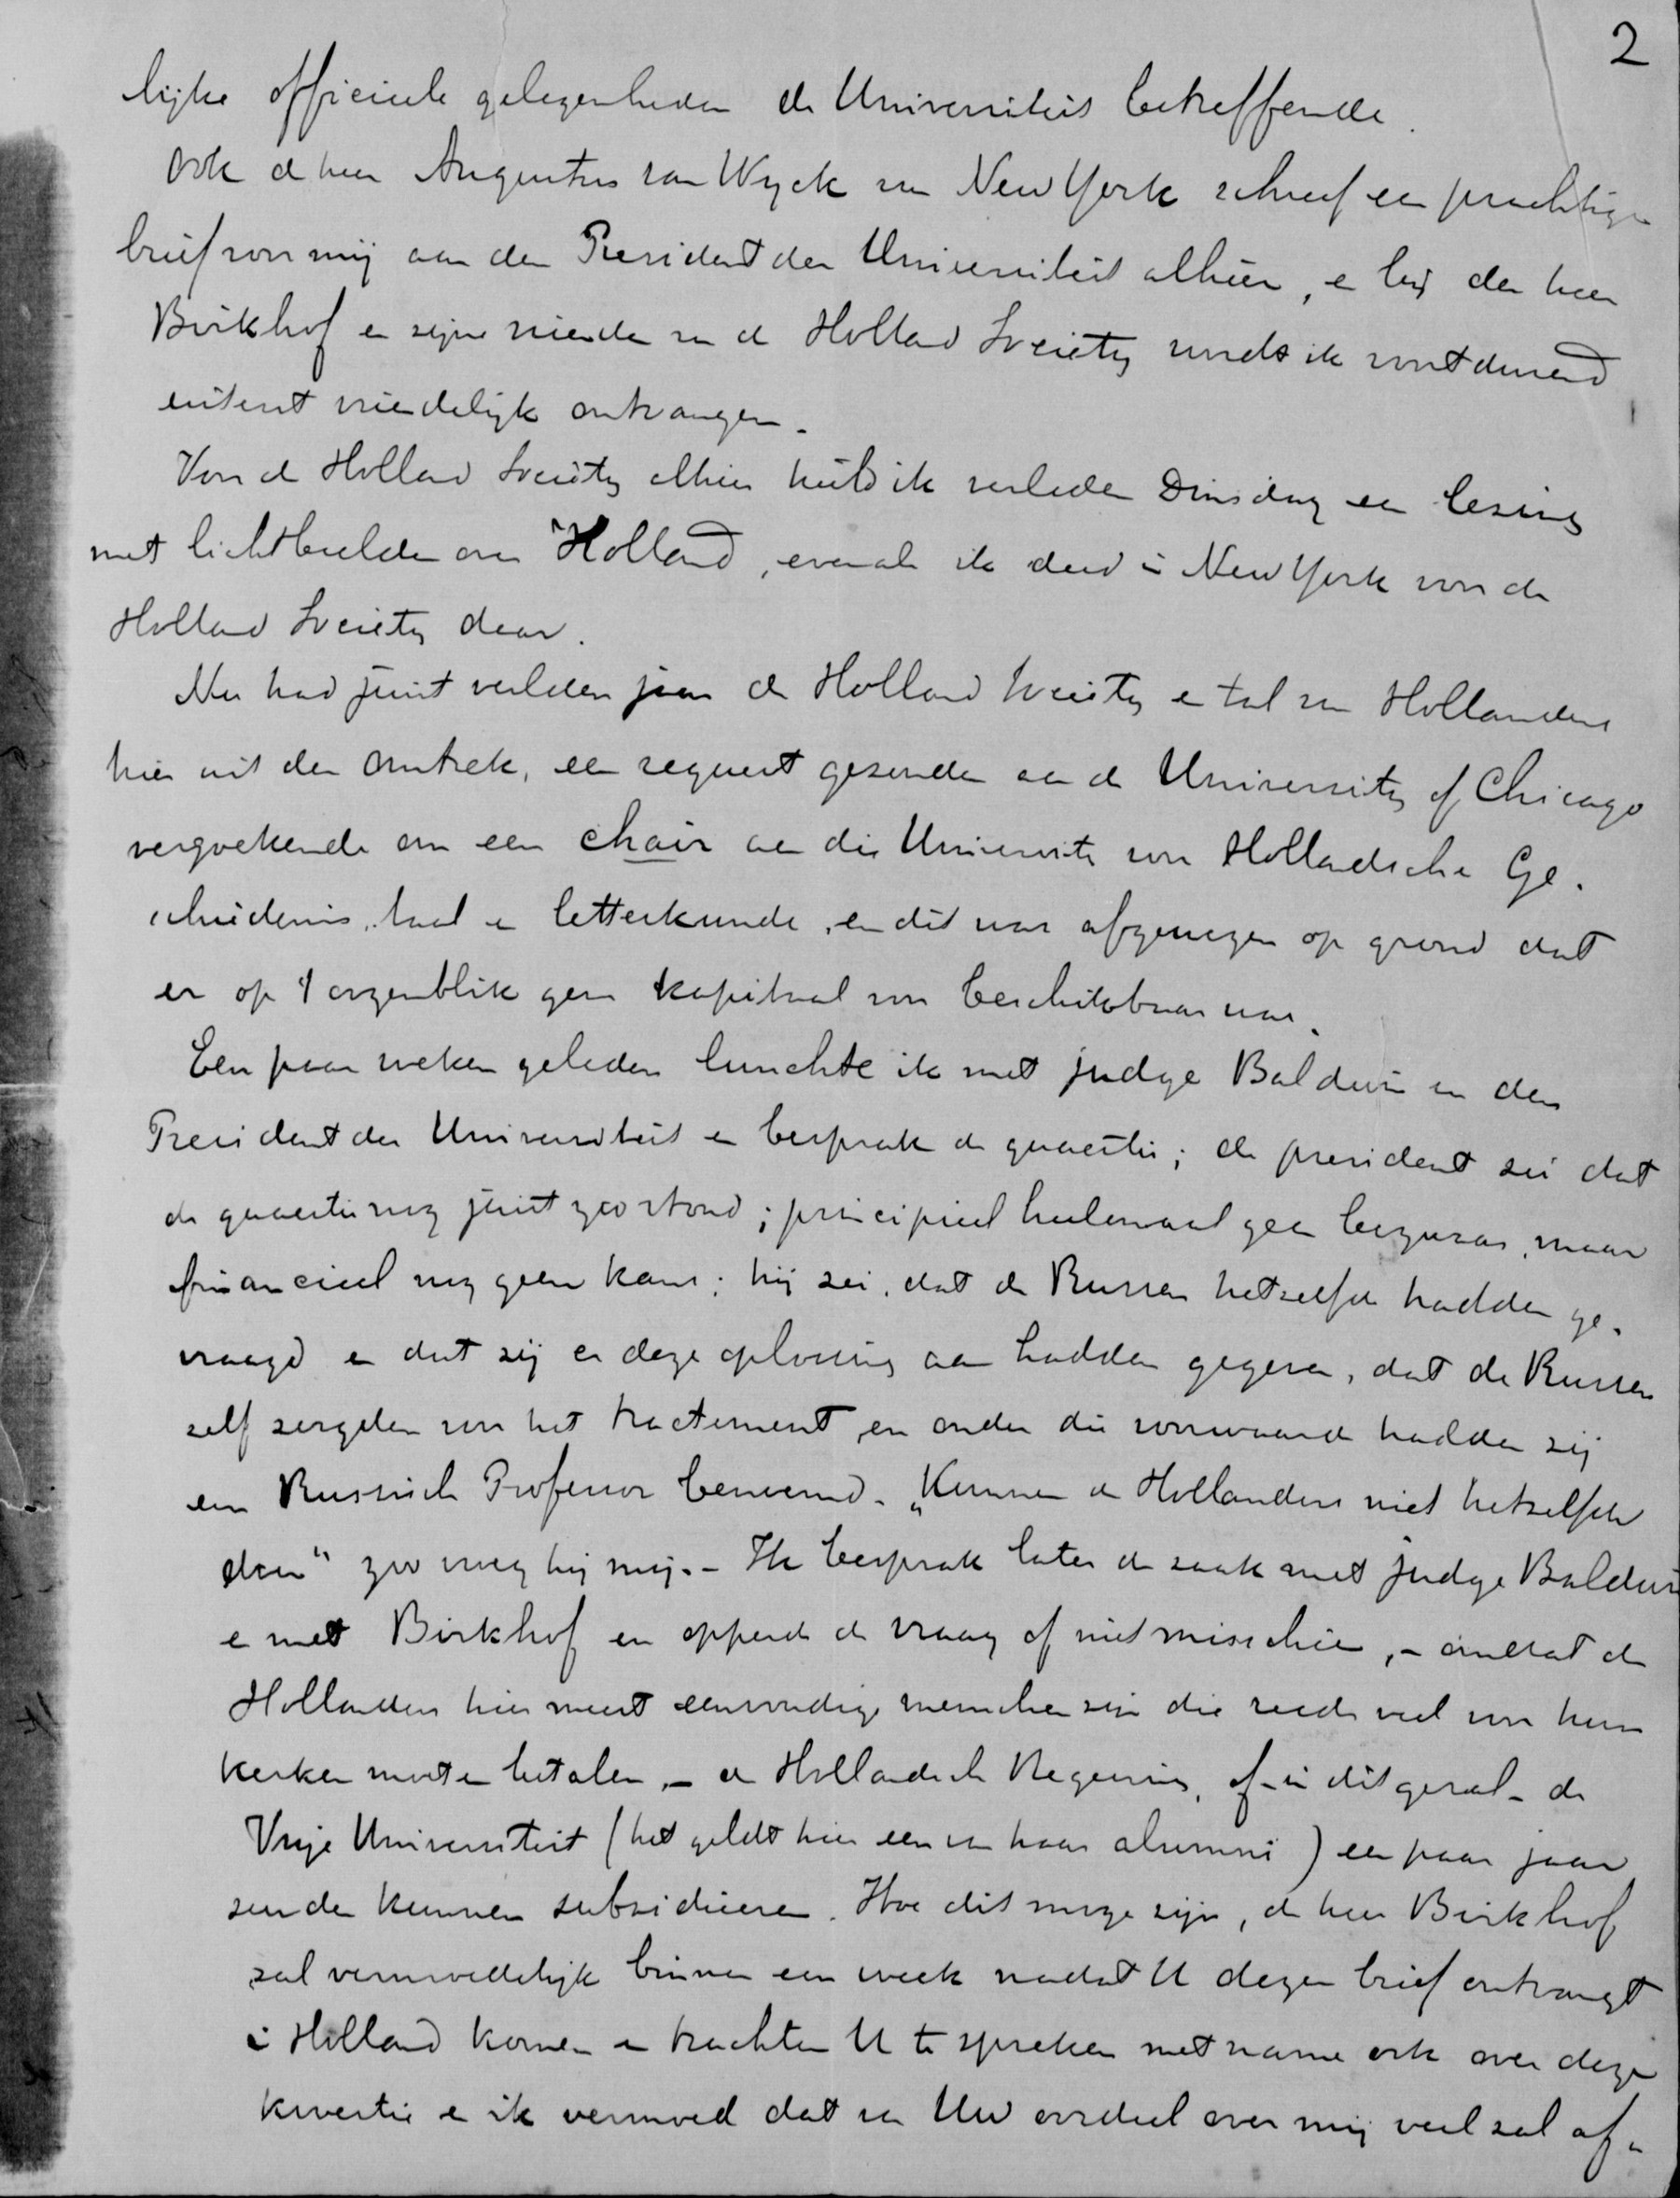 2
lijke officieele gelegenheden de Universiteit betreffende.
Ook de heer Augustus van Wyck van New York schreef een prachtigen
brief voor mij aan den President der Universiteit alhier, en bij den heer
Birkhof en zijne vrienden van de Holland Society werd ik voortdurend
uiterst vriendelijk ontvangen.
Voor de Holland Society alhier hield ik verleden Dinsdag een lezing
met lichtbeelden over Holland, evenals ik deed in New York voor de
Holland Society daar.
Nu had juist verleden jaar de Holland Society en tal van Hollanders
hier uit den omtrek, een request gezonden aan de University of Chicago
verzoekende om een chair aan die Universiteit voor Hollandsche Ge-
schiedenis, taal en letterkunde, en dit was afgewezen op grond dat
er op 't oogenblik geen kapitaal voor beschikbaar was.
Een paar weken geleden lunchte ik met judge Baldwin en den
President der Universiteit en besprak de quaestie; de president zei dat
de quaestie nog juist zoo stond; principieel heelemaal geen bezwaar, maar
financieel nog geen kans; hij zei, dat de Russen hetzelfde hadden ge-
vraagd en dat zij er deze oplossing aan hadden gegeven, dat de Russen
zelf zorgden voor het tractement, en onder die voorwaarde hadden zij
een Russisch Professor benoemd. „Kunnen de Hollanders niet hetzelfde
doen" zoo vroeg hij mij. – Ik besprak later de zaak met judge Baldwin
en met Birkhof en opperde de vraag of niet misschien, – omdat de
Hollanders hier meest eenvoudige menschen zijn die reeds veel voor hun
kerken moeten betalen, – de Hollandsche Regeering, of – in dit geval – de
Vrije Universiteit (het geldt hier een van haar alumni) een paar jaar
zouden kunnen subsidieeren. Hoe dit moge zijn, de heer Birkhof
zal vermoedelijk binnen een week nadat U dezen brief ontvangt
in Holland komen en trachten U te spreken met name ook over deze
kwestie en ik vermoed dat van Uw oordeel over mij veel zal af-